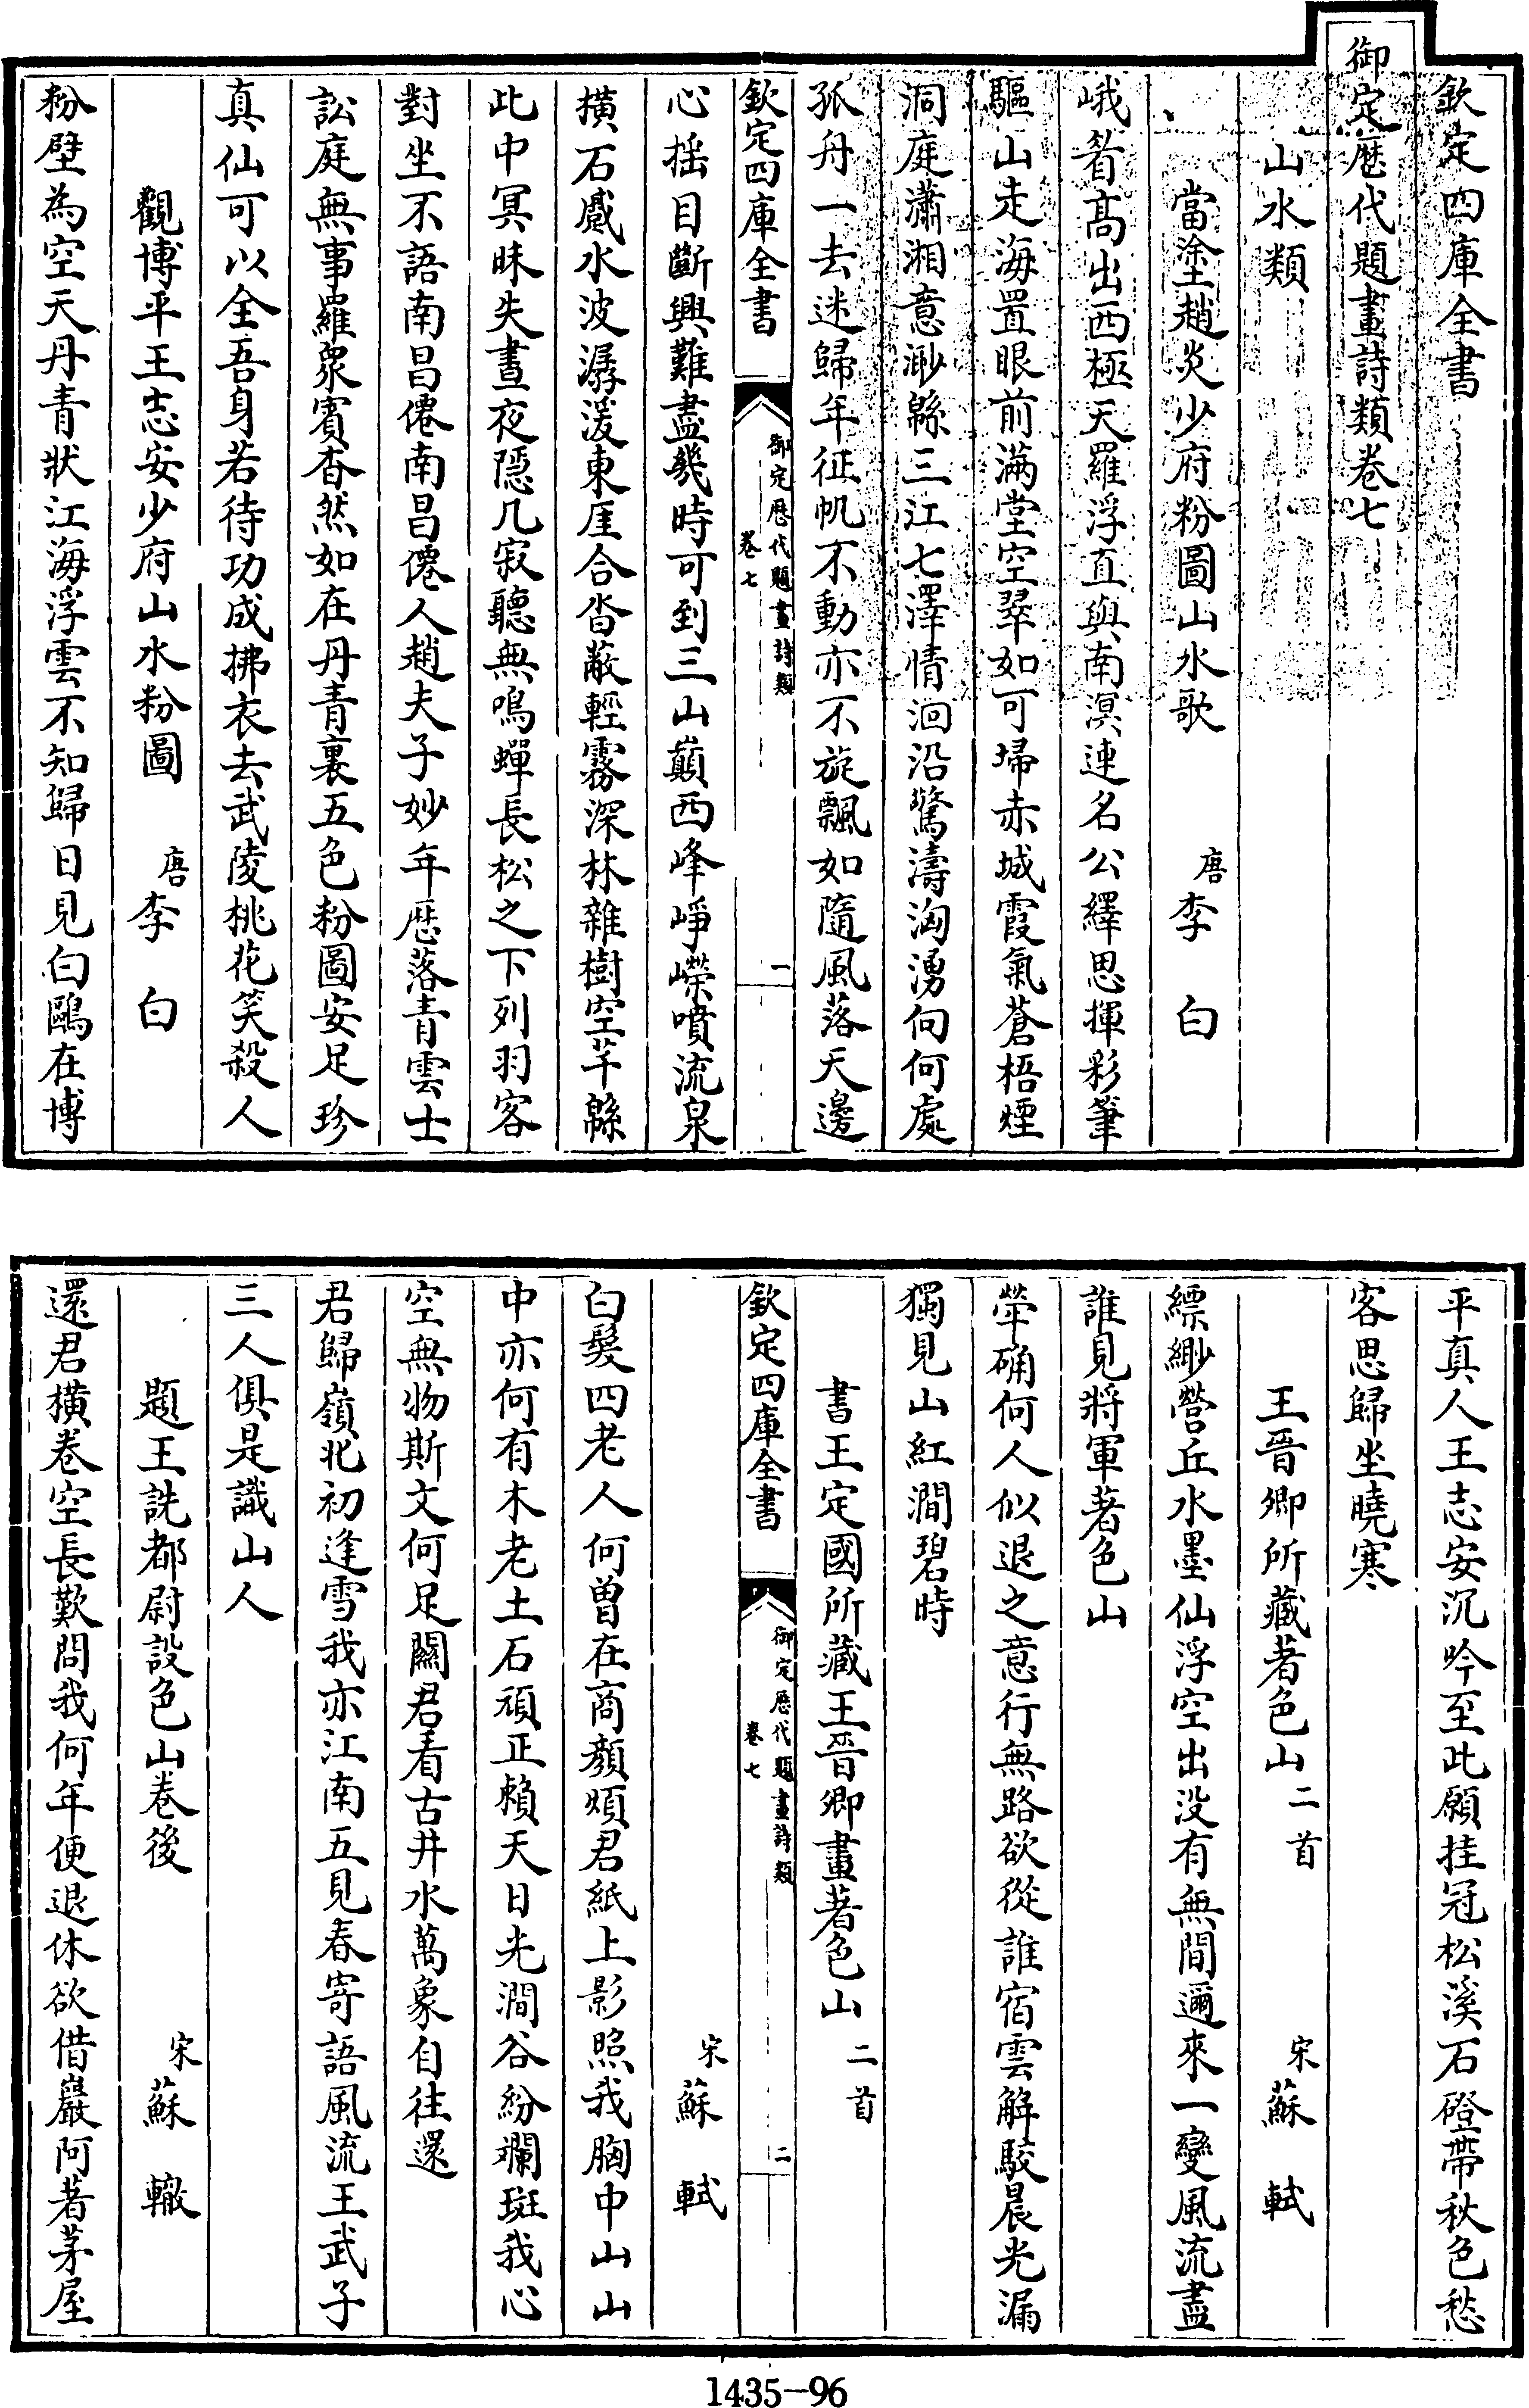 欽定四庫全書
御定歷代題畫詩類卷七
山水類
當塗趙炎少府粉圖山水歌 唐李白
峨眉高出西極天羅浮直與南溟連名公繹思揮彩筆
驅山走海置眼前滿堂空翠如可埽赤城霞氣蒼梧煙
洞庭瀟湘意渺緜三江七澤情洄沿驚濤洶湧向何處
孤舟一去迷歸年征帆不動亦不旋飄如隨風落天邊
欽定四庫全書 御定歷代題畫詩類 卷七 一
心搖目斷興難盡幾時可到三山巔西峰崢嶸噴流泉
橫石蹙水波潺湲東厓合沓蔽輕霧深林雜樹空芊緜
此中冥昧失晝夜隠几寂聽無鳴蟬長松之下列羽客
對坐不語南昌僊南昌僊人趙夫子妙年歷落青雲士
訟庭無事羅衆賓杳然如在丹青裏五色粉圖安足珍
真仙可以全吾身若待功成拂衣去武陵桃花笑殺人
觀博平王志安少府山水粉圖 唐李白
粉壁為空天丹青狀江海浮雲不知歸日見白鷗在博
平真人王志安沉吟至此願挂冠松溪石磴帶秋色愁
客思歸坐曉寒
王晉卿所藏著色山二首 宋蘇軾
縹緲營丘水墨仙浮空出没有無間邇來一變風流盡
誰見將軍著色山
犖确何人似退之意行無路欲從誰宿雲解駮晨光漏
獨見山紅澗碧時
書王定國所藏王晉卿畫著色山二首
欽定四庫全書 御定歷代題畫詩類 卷七 二
宋蘇軾
白髮四老人何曽在商顏煩君紙上影照我胸中山山
中亦何有木老土石頑正賴天日光澗谷紛斕斑我心
空無物斯文何足關君看古井水萬象自往還
君歸嶺北初逢雪我亦江南五見春寄語風流王武子
三人俱是識山人
題王詵都尉設色山卷後 宋蘇轍
還君橫卷空長歎問我何年便退休欲借巖阿著茅屋
1435-96